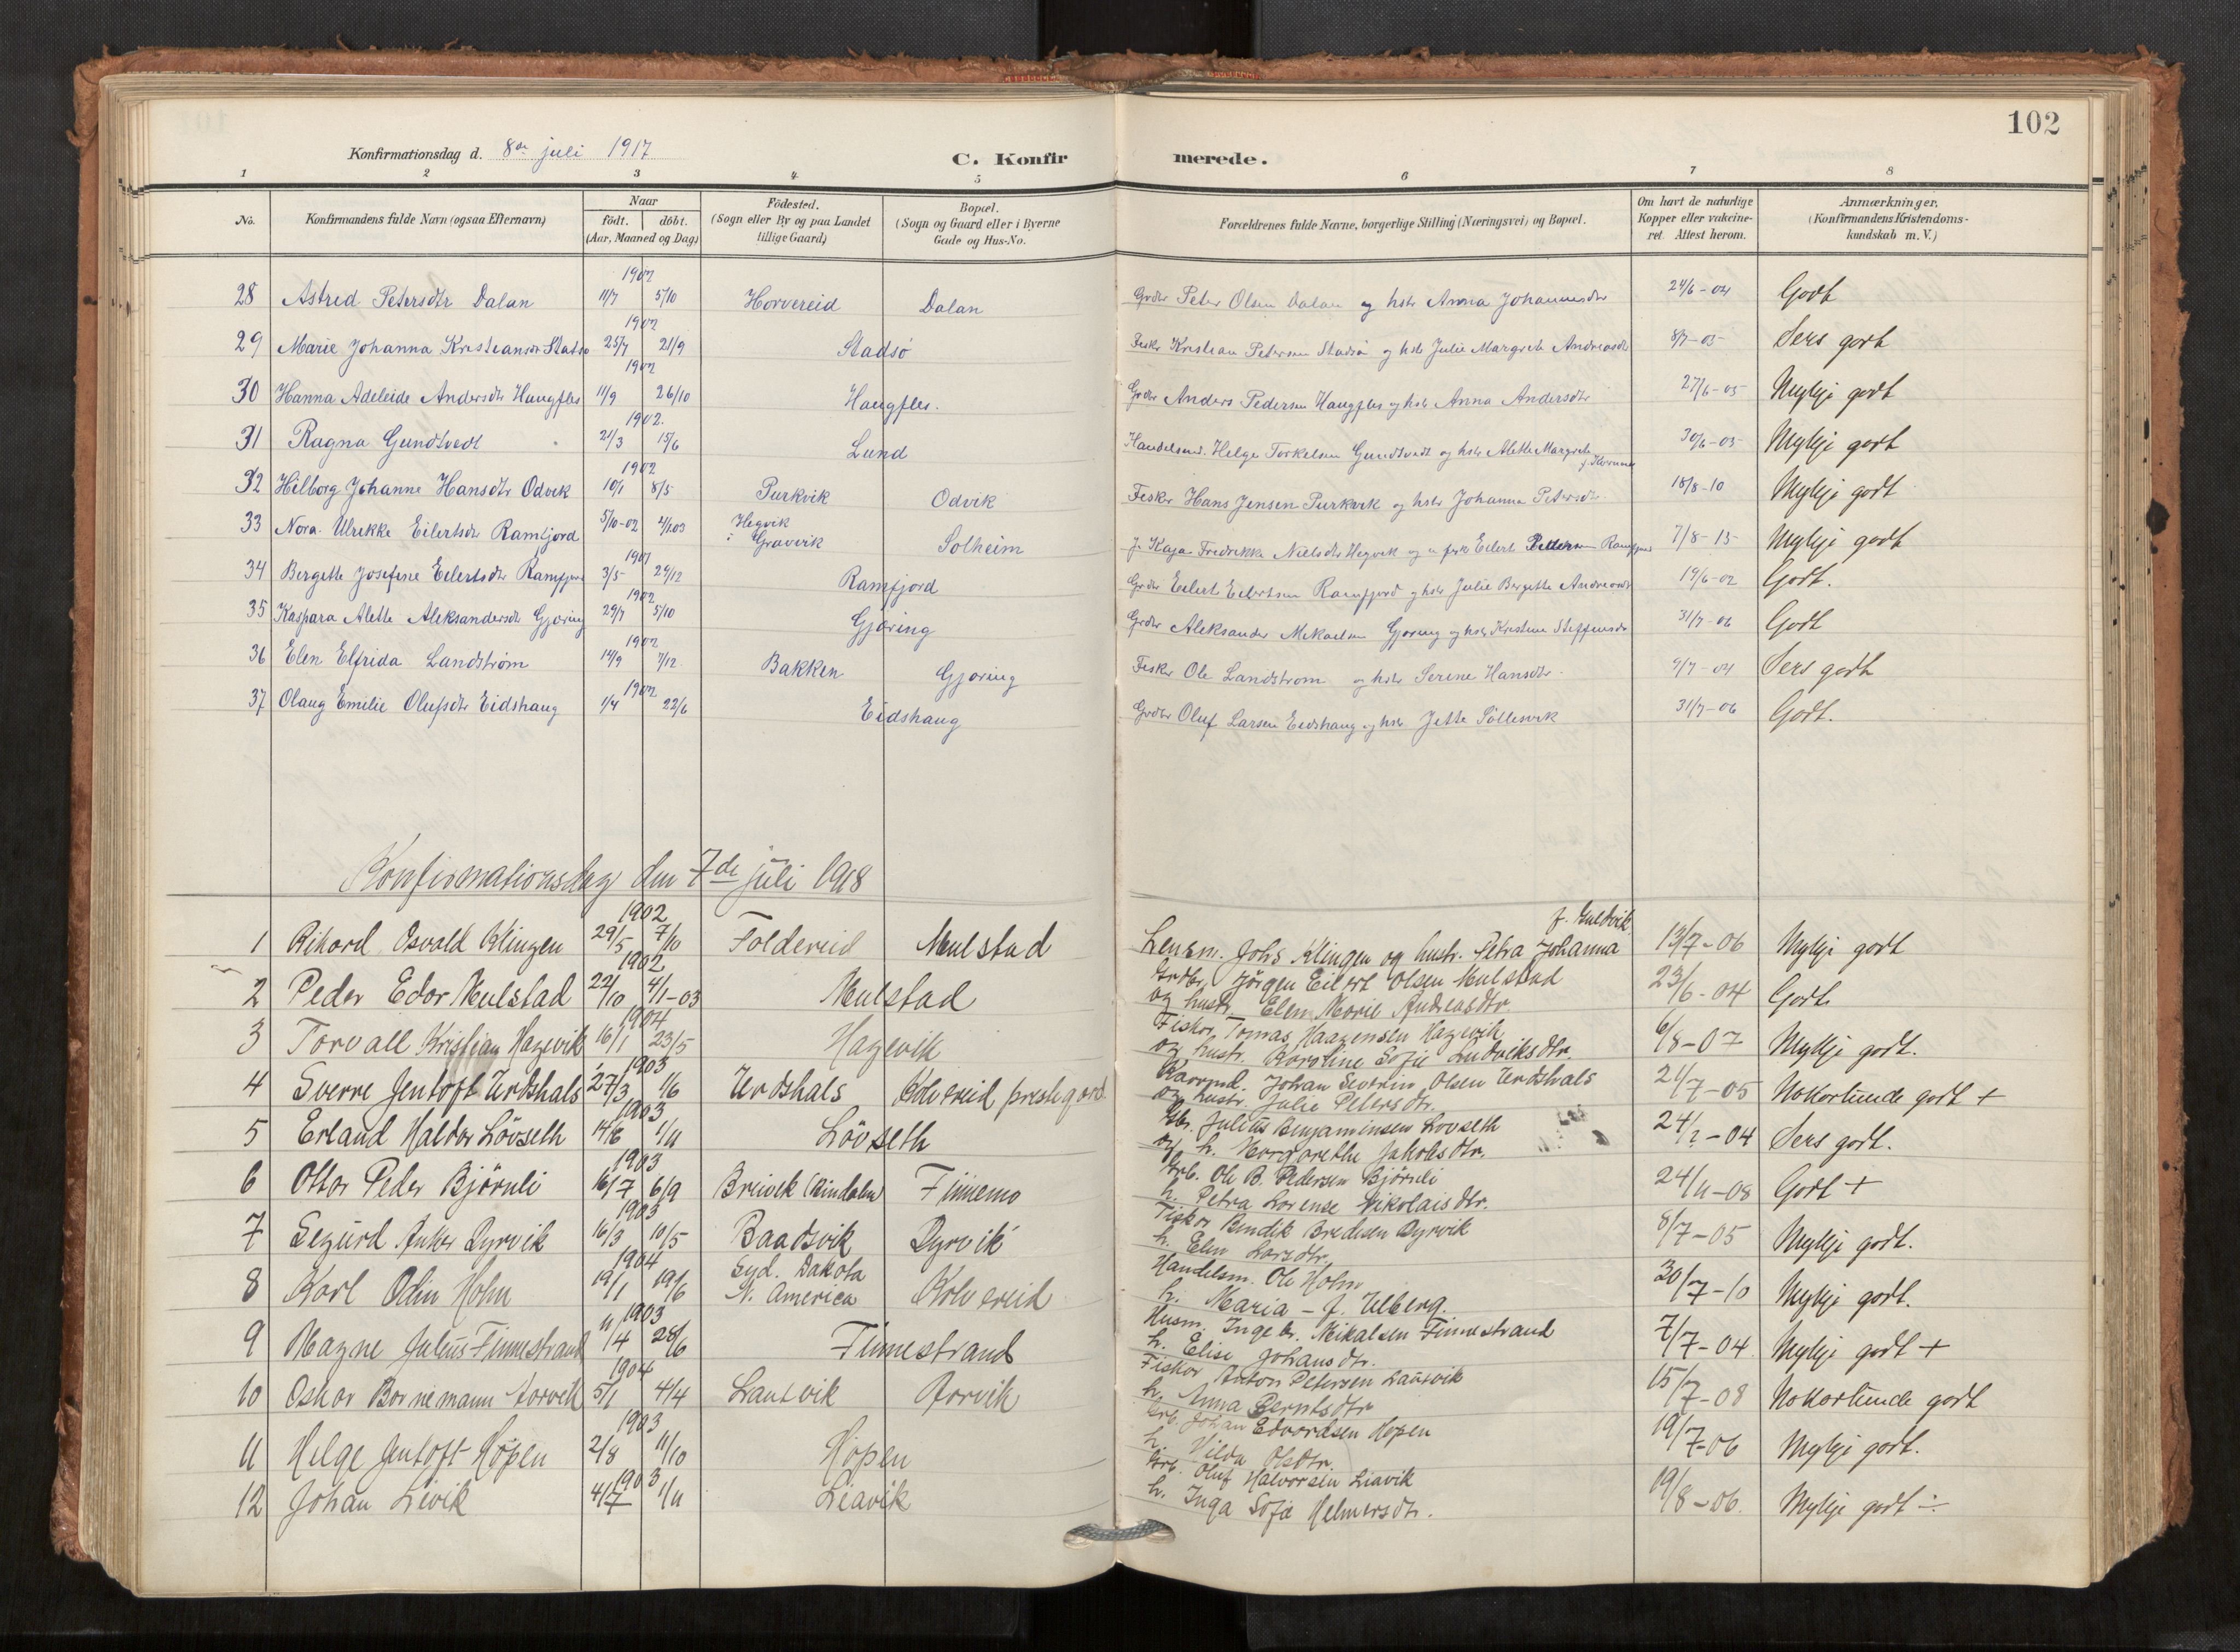 102
Konfirmationsdag d. 8de juli 1917
C. Konfirmerede.
1 2 3 4 5 6 7 8
No. Konfirmandens fulde Navn (ogsaa Efternavn) Naar födt. döbt. (Aar, Maaned og Dag) Födested. (Sogn eller By og paa Landet tillige Gaard) Bopæl. (Sogn og Gaard eller i Byerne Gade og Hus-No. Forældrenes fulde Navne, borgerlige Stilling (Næringsvei) og Bopæl. Om havt de naturlige Kopper eller vakcineret. Attest herom. Anmærkninger. (Konfirmandens Kristendomskundskab m. V.)
28 Astrid Petersdtr Dalan 1902 11/7 5/10 Horvereid Dalan Grdbr Peter Olsen Dalan og hstr Anna Johannesdtr 24/6-04 Godt
29 Marie Johanna Kristiansdr Stadsø 1902 25/7 21/9 Stadsö Fisker Kristian Petersen Stadsö og hstr Julie Margrete Andreasdt 8/7-05 Sers godt
30 Hanna Adeleide Andersdtr Haugfles 1902 11/9 26/10 Haugfles. Grdbr Anders Pedersen Haugfles og hstr Anna Andersdtr 27/6-05 Mykje godt
31 Ragna Gundtvedt 1902. 21/3 15/6 Lund Handelsmd. Helge Torkelsen Gundtvedt og hstr Alette Margrete 30/6-05 Mykje godt
32 Hilborg Johanne Hansdtr Odvik 1902 10/1 8/5 Purkvik Odvik Fisker Hans Jensen Purkvik og hstr Johanna Petersdtr 18/8-10 Mykje godt
33 Nora Ulrikke Eilertsdtr Ramfjord 5/10-02 4/1.03 Hegvik i Gravvik Solheim p. Kaja Fredrikke Nielsdtr Hegvik og u. fisk Eilert Pettersen Ramfjord 7/8-15 Mykje godt
34 Bergette Josefine Eilertsdtr Ramfjord 1901 3/5 29/12 Ramfjord Grdbr Eilert Eilertsen Ramfjord og hstr Julie Bergette Andreasdt 19/6-02 Godt.
35 Kaspara Alette Aleksandersdtr Gjøring 1902 29/7 5/10 Gjøring Grdbr Aleksander Mikaelsen Gjøring og hstr Kristine Steffensdr 31/7-06 Godt
36 Elen Elfrida Landstrøm 1902 14/9 7/12 Bakken Gjøring Fisker Ole Landstrøm og hstr Serine Hansdtr. 9/7-04 Sers godt
37 Olaug Emilie Olufsdtr Eidshaug 1902 1/4 22/6 Eidshaug Grdbr Oluf Larsen Eidshaug og hstr Jette Söllesvik 31/7-06 Godt.
Konfirmationsdag den 7de juli 1918
1 Rikard Osvald Klingen 1902 29/5 7/10 Foldereid Mulstad Lensm. Johs Klingen og hustr. Petra Johanna f. Guldvik 13/7-06 Mykje godt
2 Peder Edor Mulstad 1902 22/10 4/1-03 Mulstad Grdbr. Jörgen Eilert Olsen Mulstad
og hustr. Elen Marie Andreasdtr. 23/6-04 Godt
3 Torvall Kristian Hagevik 1904 16/1 23/5 Hagevik Fisker Tomas Haagensen Hagevik
og hustr. Karoline Sofie Ludviksdtr. 6/8-07 Mykje godt.
4 Sverre Jentoft Urdshals 1903 27/3 1/6 Urdshals Kolvereid prestegard Johan Severin Olsen Urdshals
og hustr. Julie Petersdtr. 21/7-05 Nokorlunde godt +
5 Erland Haldor Lövseth 1903 14/6 1/11 Lövseth Gbr. Julius Benjaminsen Lovseth
og h. Margarethe Jakobsdtr. 24/2-04 Sers godt.
6 Ottar Peder Björnli 1903 16/7 6/9 Breivik (Bindalen) Finnemo Grb. Ole B. Pedersen Björnli
h. Petra Lorense Nikolaisdtr. 24/11-08 Godt +
7 Segurd Anker Dyrvik 1903 16/3 10/5 Baadsvik Dyrvik Fisker Bendik Bredesen Dyrvik
h. Elen Larsdtr. 8/7-05 Mykje godt.
8 Karl Odin Holm 1904 19/1 19/6 Syd. Dakota N. America Kolvereid Handelsm. Ole Holm
h. Maria - f. Ulberg. 30/7-10 Mykje godt.
9 Magne Julius Finnestrand 1903 11/4 28/6 Finnestrand Husm. Ingebr. Mikalsen Finnestrand
h. Elise Johansdtr. 7/7-04 Mykje godt +
10 Oskar Bornemann Rorvik 1904 5/1 4/4 Lautvik Rorvik Fisker Anton Petersen Lautvik
h. Anna Berntsdtr 15/7-08 Nokorlunde godt
11 Helge Jentoft Hopen 1903 2/8 11/10 Hopen Grb. Johan Edvardsen Hopen
h. Hilda Olsdtr. 19/7-06 Mykje godt.
12 Johan Livik 1903 4/7 1/11 Liavik Grb. Oluf Halvorsen Liavik
h. Inga Sofie Helmersdtr. 19/8-06. Mykje godt ÷